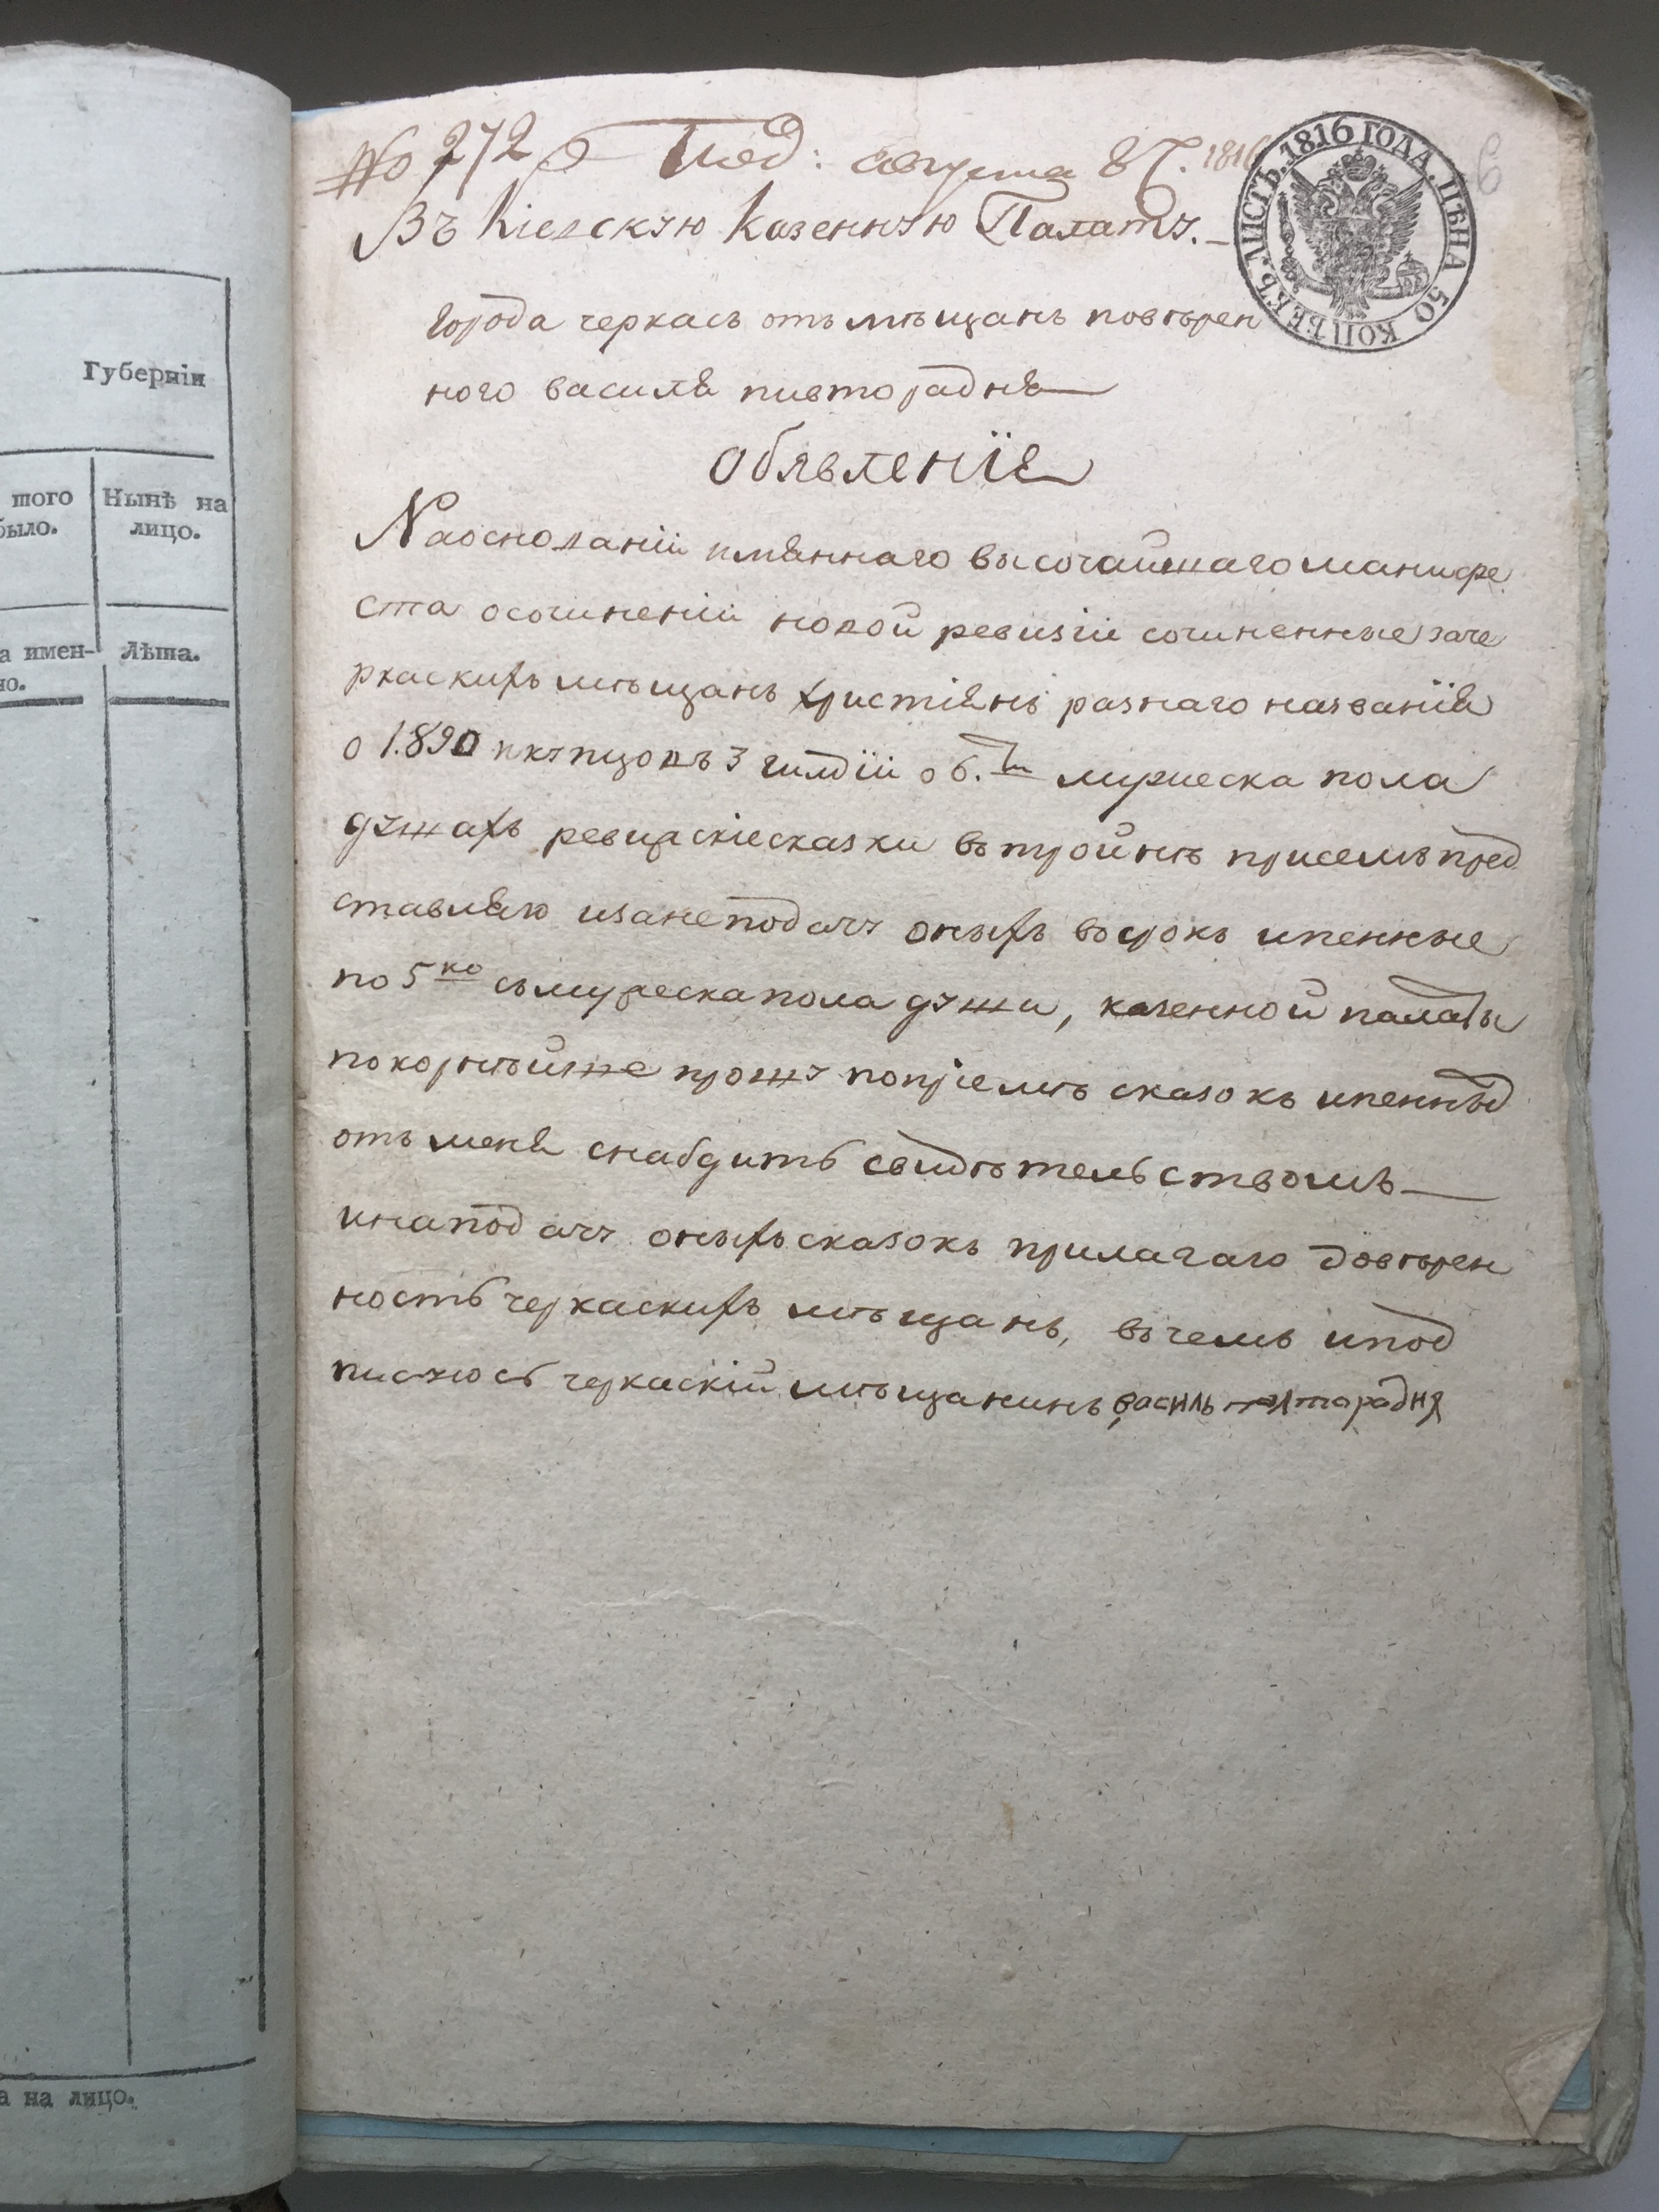 Губерніи
того
было.
Нынѣ на
лицо.
а имен-
но.
Лѣта.
а на лицо.
№ 272 Под: августа 1816
ЛИСТЪ. 1816 ГОДА. ЦѢНА 50 КОПѢЕКЪ.
Въ Кіевскую Казенную Палату.
города черкасъ отъ мѣщанъ повѣрен
ного василя пивторадня
Обявленіе
На основаніи имяннаго высочайшаго манифе
ста о сочиненіи новой ревизіи сочиненные заче
ркаскихъ мѣщанъ христіянъ разнаго названія
о 1.890 и купцовъ 3 гилдіи о 6.ти мужеска пола
душахъ ревизскіе сказки въ тройнѣ присемъ пред
ставляю и за неподачу оныхъ въ срокъ и пенные
по 5ко съ мужеска пола души, казенной палаты
покорнѣйше прошу по пріемѣ сказокъ и пенныхъ
отъ меня снабдить свидѣтельствомъ
и на подачу оныхъ сказокъ прилагаю довѣрен
ность черкаскихъ мѣщанъ, въ чемъ и под
писуюсь черкаскій мѣщанинъ василь полторадня